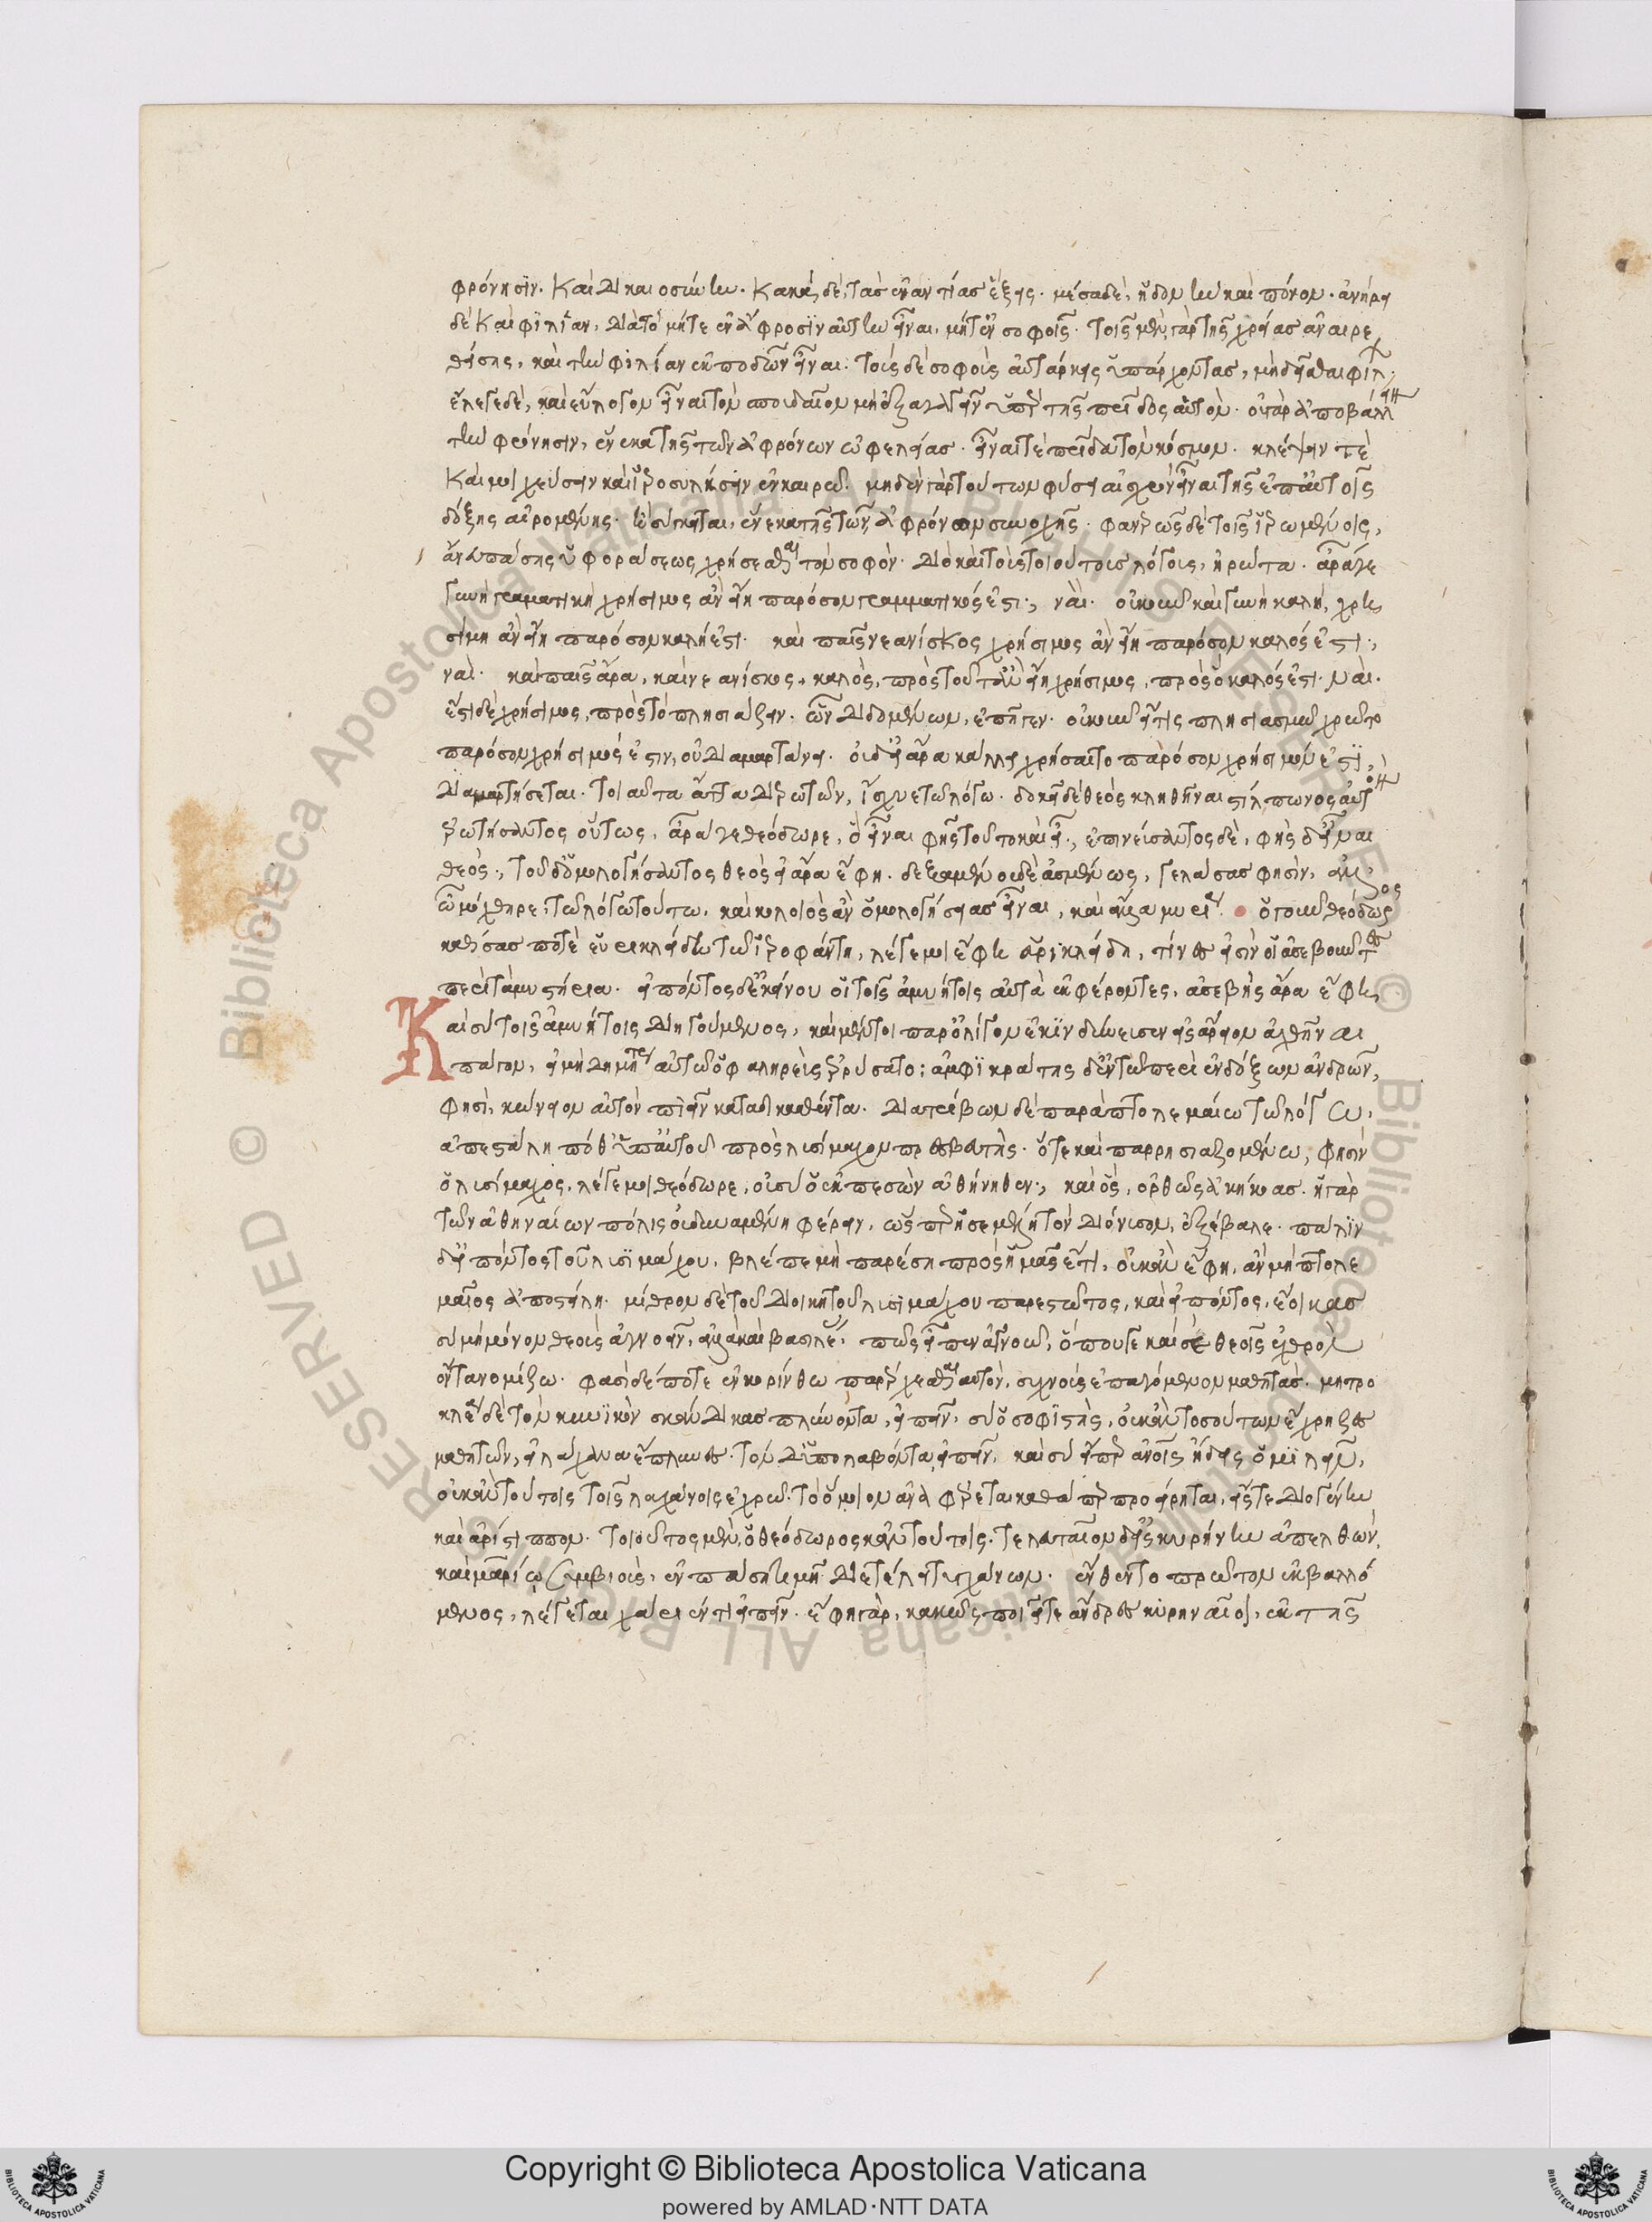 φρόνησιν. καὶ δικαιοσύνην. κακὰς δὲ, τὰς ἐναντίας ἕξεις. μέσα δὲ, ἡδονὴν καὶ πόνον. ἀνήρει
δὲ καὶ φιλίαν, διὰ τὸ μήτε ἐν ἄφροσιν αὐτὴν εἶναι, μήτ' ἐν σοφοῖς. τοῖς μὲν γὰρ τῆς χρείας ἀναιρε
θείσης, καὶ τὴν φιλίαν ἐκποδὼν εἶναι. τοὺς δὲ σοφοὺς αὐτάρκεις ὑπάρχοντας, μὴ δεῖσθαι φίλ
ἔλεγε δὲ, καὶ εὔλογον εἶναι τὸν σπουδαῖον μὴ ἐξαγαγεῖν ὑπὲρ τῆς πατρίδος αὐτόν. οὐ γὰρ ἀποβάλλειν
τὴν φρόνησιν, ἕνεκα τῆς τῶν ἀφρόνων ὠφελείας. εἶναί τε πατρίδα τὸν κόσμον. κλέψειν τε
καὶ μοιχεύσειν καὶ ἱεροσυλήσειν ἐν καιρῷ. μηδὲν γὰρ τούτων φύσει αἰσχρὸν εἶναι τῆς ἐπ' αὐτοῖς
δόξης αἰρομένης. ἣ σύγκειται, ἕνεκα τῆς τῶν ἀφρόνων συνοχῆς. φανερῶς δὲ τοῖς ἐρωμένοις,
ἄνευ πάσης ὑφοράσεως χρήσεσθαι τὸν σοφόν. διὸ καὶ τοὺς τοιούτοις λόγοις, ἠρώτα. ἆρά γε
γυνὴ γραμματικὴ χρήσιμος ἂν εἴη παρόσον γραμματικός ἐστι; ναί. οὐκοῦν καὶ γυνὴ καλὴ, χρη
σίμη ἂν εἴη παρόσον καλή ἐστι. καὶ παῖς νεανίσκος χρήσιμος ἂν εἴη παρόσον καλός ἐστι;
ναί. καὶ παῖς ἄρα, καὶ νεανίσκος, καλὸς, πρὸς τοῦτ' ἂν εἴη χρήσιμος, πρὸς ὃ καλός ἐστι. ναί.
ἔστι δὲ χρήσιμος, πρὸς τὸ πλησιάζειν. ὧν διδομένων, ἐπῆγεν. οὐκοῦν εἴ τις πλησιασμῷ χρῷτο
παρόσον χρήσιμός ἐστιν, οὐ διαμαρτάνει. οὐδ' εἰ ἄρα κάλλει χρήσαιτο παρόσον χρήσιμόν ἐστι,
διαμαρτήσεται. τοιαῦτα ἄττα διερωτῶν, ἴσχυε τῷ λόγῳ. δοκεῖ δὲ θεὸς κληθῆναι στίλπωνος αὐτὸν
ἐρωτήσαντος οὕτως, ἆρά γε θεόδωρε, ὃ εἶναι φῂς τοῦτο καὶ εἶ; ἐπινεύσαντος δὲ, φῂς δ' εἶναι
θεός; τοῦ δ' ὁμολογήσαντος θεὸς εἶ ἄρα ἔφη. δεξαμένου δὲ ἀσμένως, γελάσας φησὶν, ἀλλ'
ὦ μόχθηρε, τῷ λόγῳ τούτῳ, καὶ κολοιὸς ἂν ὁμολογήσειας εἶναι, καὶ ἄλλα μυρία. ὁ γοῦν θεόδωρος
καθίσας ποτὲ εὐρυκλείδῃ τῷ ἱεροφάντῃ, λέγε μοι ἔφη εὐρυκλείδη, τίνες εἰσὶν οἱ ἀσεβοῦντες
περὶ τὰ μυστήρια. εἰπόντος δ' ἐκείνου οἱ τοῖς ἀμυήτοις αὐτὰ ἐκφέροντες, ἀσεβὴς ἄρα ἔφη,
Καὶ σὺ τοῖς ἀμυήτοις διηγούμενος, καὶ μέντοι παρ' ὀλίγον ἐκινδύνευσεν εἰς ἄρειον ἀχθῆναι
πάγον, εἰ μὴ δημήτριος αὐτὸν ὁ φαληρεὺς ἐρύσατο: ἀμφικράτης δ' ἐν τῷ περὶ ἐνδόξων ἀνδρῶν,
φησὶ, κώνειον αὐτὸν πιεῖν καταδικασθέντα. διατρίβων δὲ παρὰ πτολεμαίῳ τῷ λάγου,
ἀπεστάλη ποθ' ὑπ' αὐτοῦ πρὸς λυσίμαχον πρεσβευτής. ὅτε καὶ παρρησιαζομένῳ, φησὶν
ὁ λυσίμαχος, λέγε μοι θεόδωρε, οὐ σὺ ὁ ἐκπεσὼν ἀθήνηθεν; καὶ ὃς, ὀρθῶς ἀκήκοας. ἡ γὰρ
τῶν ἀθηναίων πόλις οὐ δυναμένη φέρειν, ὥσπερ ἡ σεμέλη τὸν διόνυσον, ἐξέβαλε. πάλιν
δ' εἰπόντος τοῦ λυσιμάχου, βλέπε μὴ παρέσῃ πρὸς ἡμᾶς ἔτι, οὐκ ἂν ἔφη, ἂν μὴ πτολε
μαῖος ἀποστείλῃ. μίθρου δὲ τοῦ διοικητοῦ λυσιμάχου παρεστῶτος, καὶ εἰπόντος, ἔοικας
σὺ μὴ μόνον θεοὺς ἀγνοεῖν, ἀλλὰ καὶ βασιλέας, πῶς εἶπεν ἀγνοῶ, ὅπου γε καὶ σε θεοῖς ἐχθρὸν
ὄντα νομίζω. φασὶ δέ ποτε ἐν κορίνθῳ παρέρχεσθαι αὐτὸν, συχνοὺς ἐπαγόμενον μαθητάς. μητρο
κλέα δὲ τὸν κυνικὸν σκάνδικας πλύνοντα, εἰπεῖν, σὺ ὁ σοφιστὴς, οὐκ ἂν τοσούτων ἔχρῃζες
μαθητῶν, εἰ λάχανα ἔπλυνες. τὸν δ' ὑπολαβόντα, εἰπεῖν, καὶ σὺ εἴπερ ἀνθρώποις ᾔδεις ὁμιλεῖν,
οὐκ ἂν τούτοις τοῖς λαχάνοις ἐχρῶ. τὸ ὅμοιον ἀναφέρεται καθάπερ προείρηται, εἴς τε διογένην
καὶ ἀρίστιππον. τοιοῦτος μὲν ὁ θεόδωρος κἀν τούτοις. τελευταῖον δ' εἰς κυρήνην ἀπελθὼν,
καὶ μαρίῳ συμβιοὺς, ἐν πάσῃ τιμῇ διετέλει τυγχάνων. ἔνθεν τὸ πρῶτον ἐκβαλλό
μενος, λέγεται χαρίεν τι εἰπεῖν. ἔφη γὰρ, κακῶς ποιεῖτε ἄνδρες κυρηναῖοι, ἐκ τῆς
Copyright © Biblioteca Apostolica Vaticana
powered by AMLAD·NTT DATA